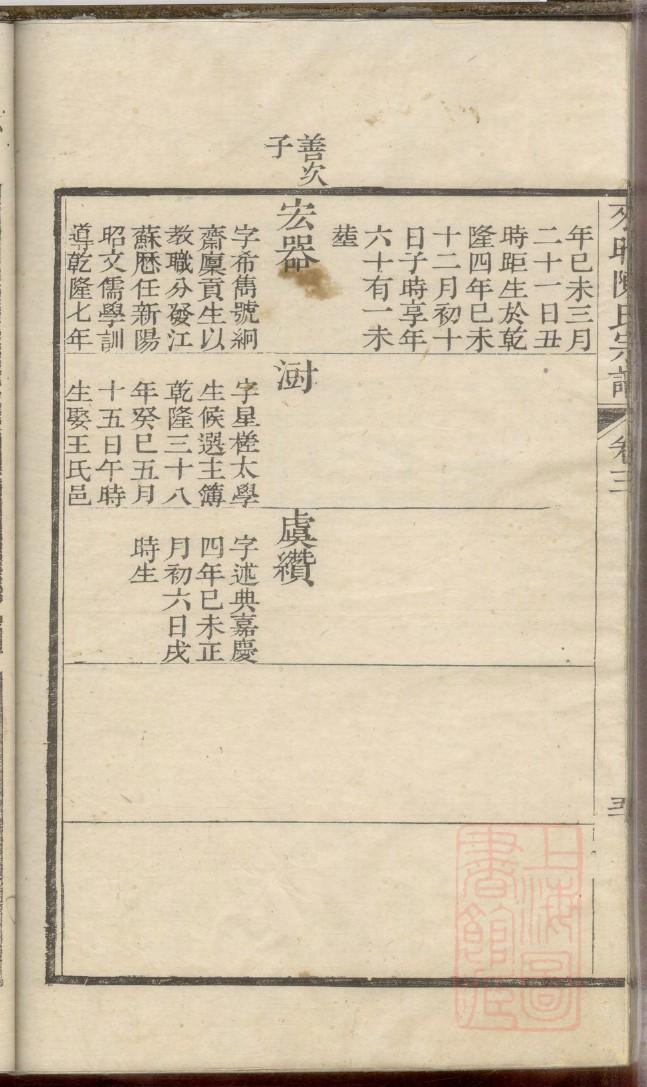 陳氏宗譜
卷三
年己未三月
二十一日丑
時距生於乾
隆四年己未
十二月初十
日子時享年
六十有一未
塟
善次
子
宏器
字希雋號絅
齋廩貢生以
教職分發江
蘇歷任新陽
昭文儒學訓
導乾隆七年
澍
字星槎太學
生候選主簿
乾隆三十八
年癸巳五月
十五日午時
生娶王氏邑
虞纘
字述典嘉慶
四年己未正
月初六日戌
時生
上海圖
書館藏